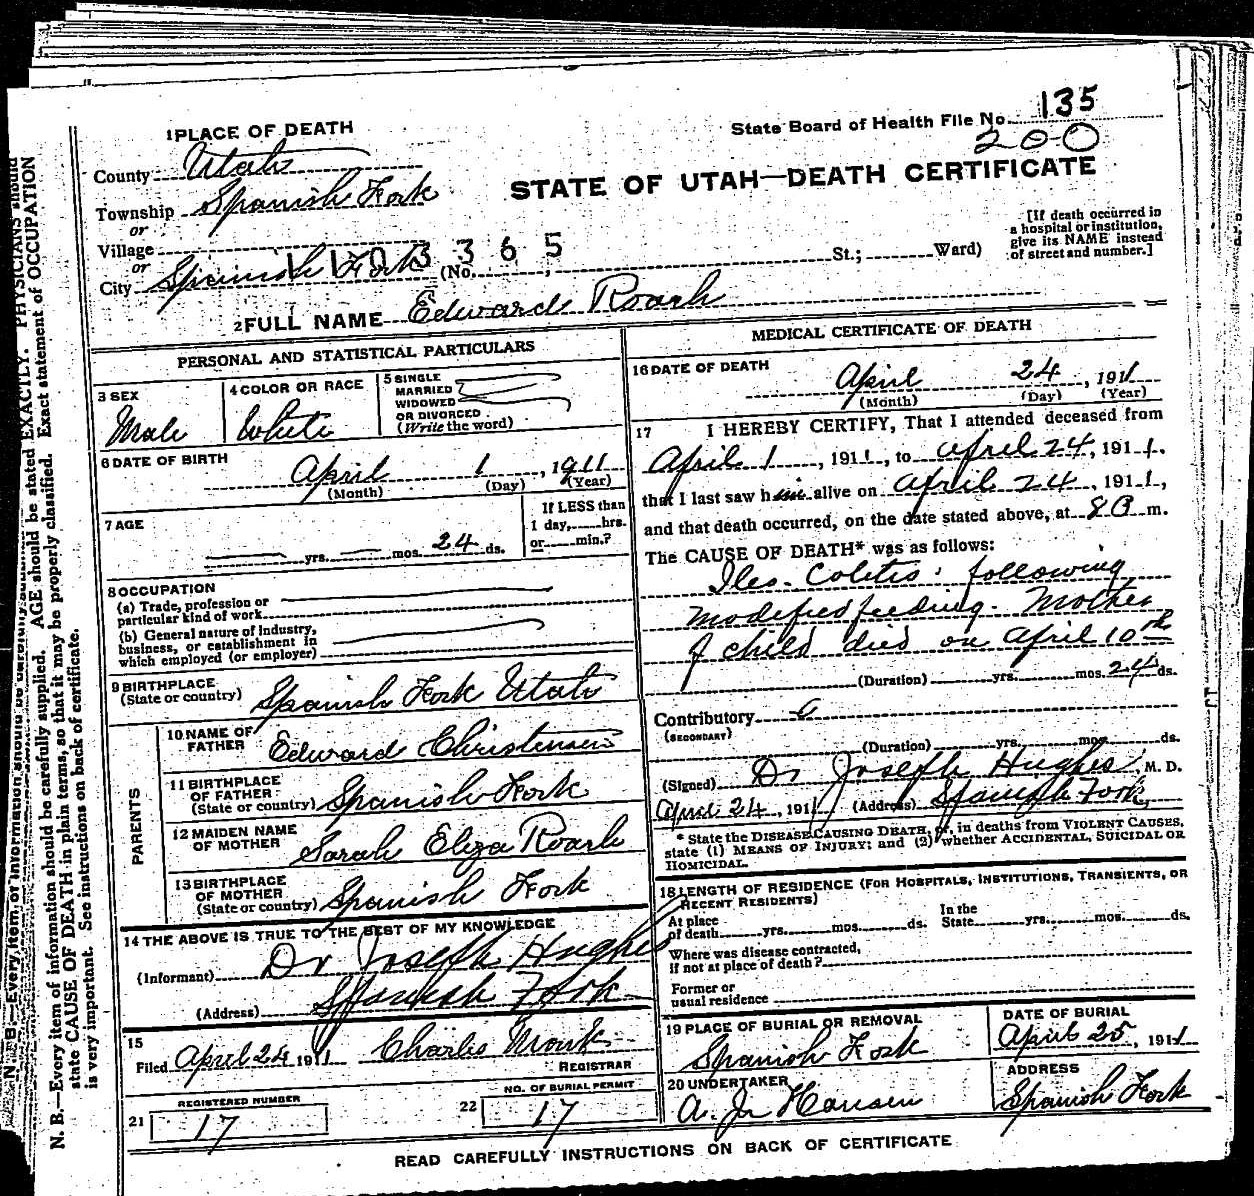 1 PLACE OF DEATH
State Board of Health File No. 135
200
County Utah
STATE OF UTAH—DEATH CERTIFICATE
Township Spanish Fork
or
Village
or
1103365
City Spanish Fork (No. St.; Ward)
[If death occurred in
a hospital or institution,
give its NAME instead
of street and number.]
2 FULL NAME Edward Roach
PERSONAL AND STATISTICAL PARTICULARS
3 SEX
Male
4 COLOR OR RACE
White
5 SINGLE
MARRIED
WIDOWED
OR DIVORCED
(Write the word)
6 DATE OF BIRTH
April 1, 1911
(Month) (Day) (Year)
7 AGE
yrs. mos. 24 ds.
If LESS than
1 day, hrs.
or min.?
8 OCCUPATION
(a) Trade, profession or
particular kind of work
(b) General nature of industry,
business, or establishment in
which employed (or employer)
9 BIRTHPLACE
(State or country) Spanish Fork Utah
PARENTS
10 NAME OF
FATHER Edward Christensen
11 BIRTHPLACE
OF FATHER
(State or country) Spanish Fork
12 MAIDEN NAME
OF MOTHER Sarah Eliza Roach
13 BIRTHPLACE
OF MOTHER
(State or country) Spanish Fork
14 THE ABOVE IS TRUE TO THE BEST OF MY KNOWLEDGE
(Informant) Dr Joseph Hughes
(Address) Spanish Fork
15
Filed April 24 1911 Charles Monk
REGISTRAR
21 REGISTERED NUMBER
17
22 NO. OF BURIAL PERMIT
17
MEDICAL CERTIFICATE OF DEATH
16 DATE OF DEATH
April 24, 1911
(Month) (Day) (Year)
17 I HEREBY CERTIFY, That I attended deceased from
April 1, 1911, to April 24, 1911,
that I last saw him alive on April 24, 1911,
and that death occurred, on the date stated above, at 8 m.
The CAUSE OF DEATH* was as follows:
Ileo-Colitis: following
modified feeding. Mother
of child died on April 10th
(Duration) yrs. mos. 24 ds.
Contributory
(SECONDARY)
(Duration) yrs. mos. ds.
(Signed) Dr Joseph Hughes, M. D.
April 24, 1911 (Address) Spanish Fork,
* State the DISEASE CAUSING DEATH, or, in deaths from VIOLENT CAUSES,
state (1) MEANS OF INJURY; and (2) whether ACCIDENTAL, SUICIDAL OR
HOMICIDAL.
18 LENGTH OF RESIDENCE (FOR HOSPITALS, INSTITUTIONS, TRANSIENTS, OR
RECENT RESIDENTS)
At place
of death yrs. mos. ds.
In the
State yrs. mos. ds.
Where was disease contracted,
if not at place of death?
Former or
usual residence
19 PLACE OF BURIAL OR REMOVAL
Spanish Fork
DATE OF BURIAL
April 25, 1911
20 UNDERTAKER
A. Jr Hansen
ADDRESS
Spanish Fork
READ CAREFULLY INSTRUCTIONS ON BACK OF CERTIFICATE
N. B.—Every item of information should be carefully supplied. AGE should be stated EXACTLY. PHYSICIANS should
state CAUSE OF DEATH in plain terms, so that it may be properly classified. Exact statement of OCCUPATION
is very important. See instructions on back of certificate.